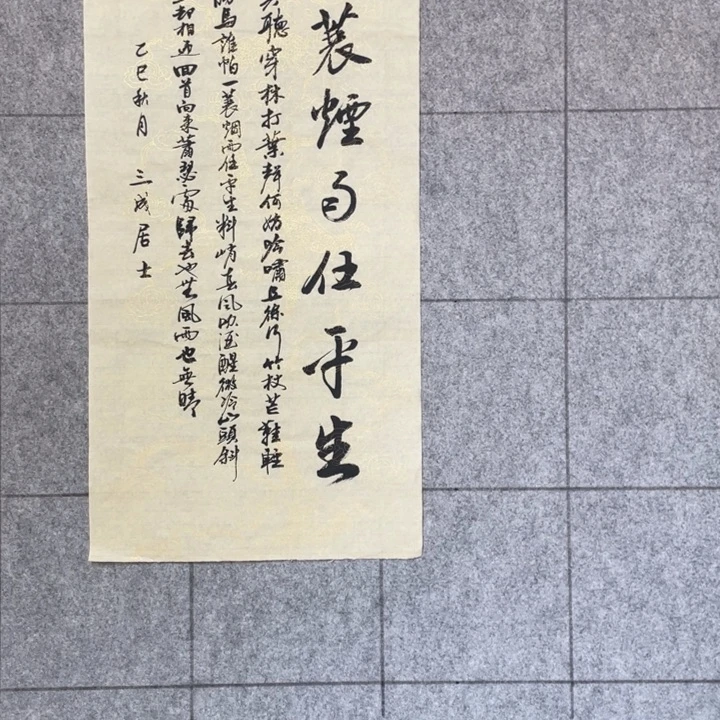 蓑煙雨任平生
聽穿林打葉聲何妨吟嘯且徐行竹杖芒鞋輕
馬誰怕一蓑烟雨任平生料峭春風吹酒醒微冷山頭斜
却相迎回首向来蕭瑟處歸去也無風雨也無晴
乙巳秋月 三成居士